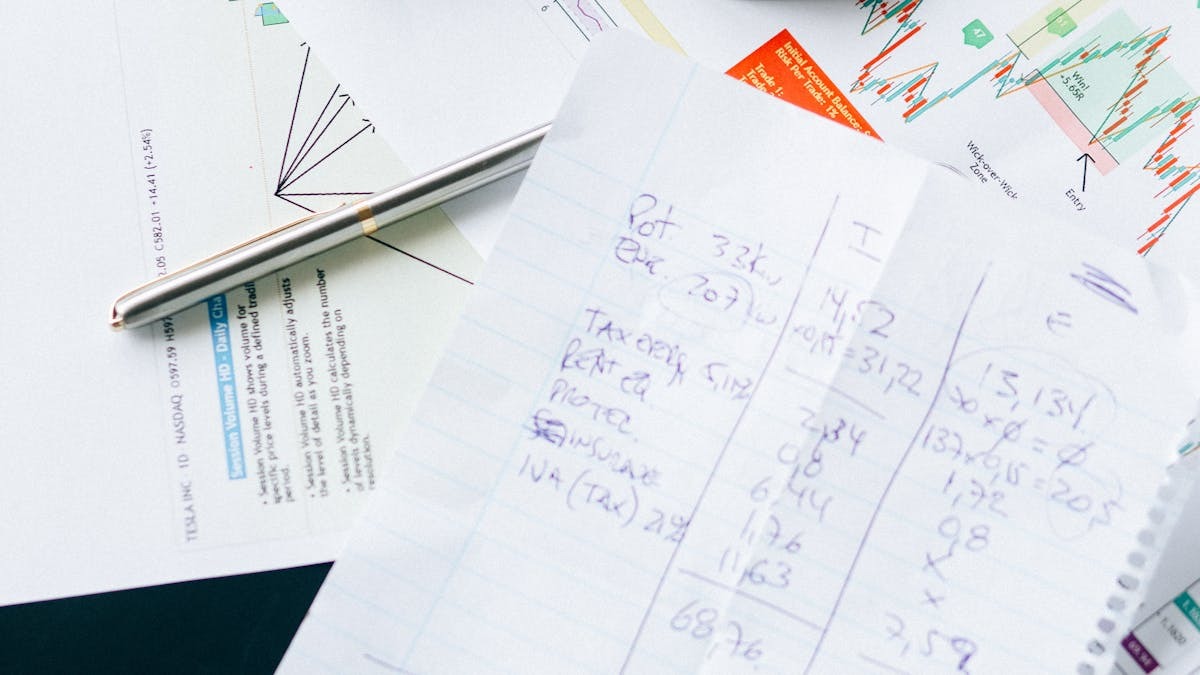 TESLA INC · 1D · NASDAQ O597.59 H597 2.05 C582.01 +14.41 (+2.54%)
Session Volume HD - Daily Cha
• Session Volume HD shows volume for
specific price levels during a defined tradi
period.
• Session Volume HD automatically adjusts
the level of detail as you zoom.
• Session Volume HD calculates the number
of levels dynamically depending on
resolution.
6
Initial Account Balance:
Risk Per Trade: 1%
Trade 1:
Trade
47
Win!
+5.65R
Wick-over-Wick
Zone
Entry
I
E
Pot. 33kw 14,52 13,134
207 = 31,22 x0x0 = 0
137x0,15 = 20,5
TAX 5,11% 2,34 1,72
RENT EQ. 0,8 0,8
PROTEC. 6,44 x
INSURANCE 1,76 x
IVA (TAX) 21% 11,63 7,59
68,76